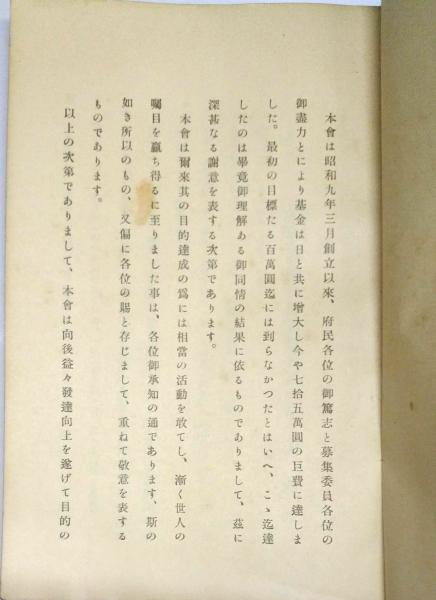 本會は昭和九年三月創立以來、府民各位の御篤志と募集委員各位の
御盡力とにより基金は日と共に增大し今や七拾五萬圓の巨費に達しま
した。最初の目標たる百萬圓迄には到らなかつたとはいへ、こゝ迄達
したのは畢竟御理解ある御同情の結果に依るものでありまして、茲に
深甚なる謝意を表する次第であります。
本會は爾來其の目的達成の爲には相當の活動を敢てし、漸く世人の
囑目を贏ち得るに至りました事は、各位御承知の通であります、斯の
如き所以のもの、又偏に各位の賜と存じまして、重ねて敬意を表する
ものであります。
以上の次第でありまして、本會は向後益々發達向上を遂げて目的の